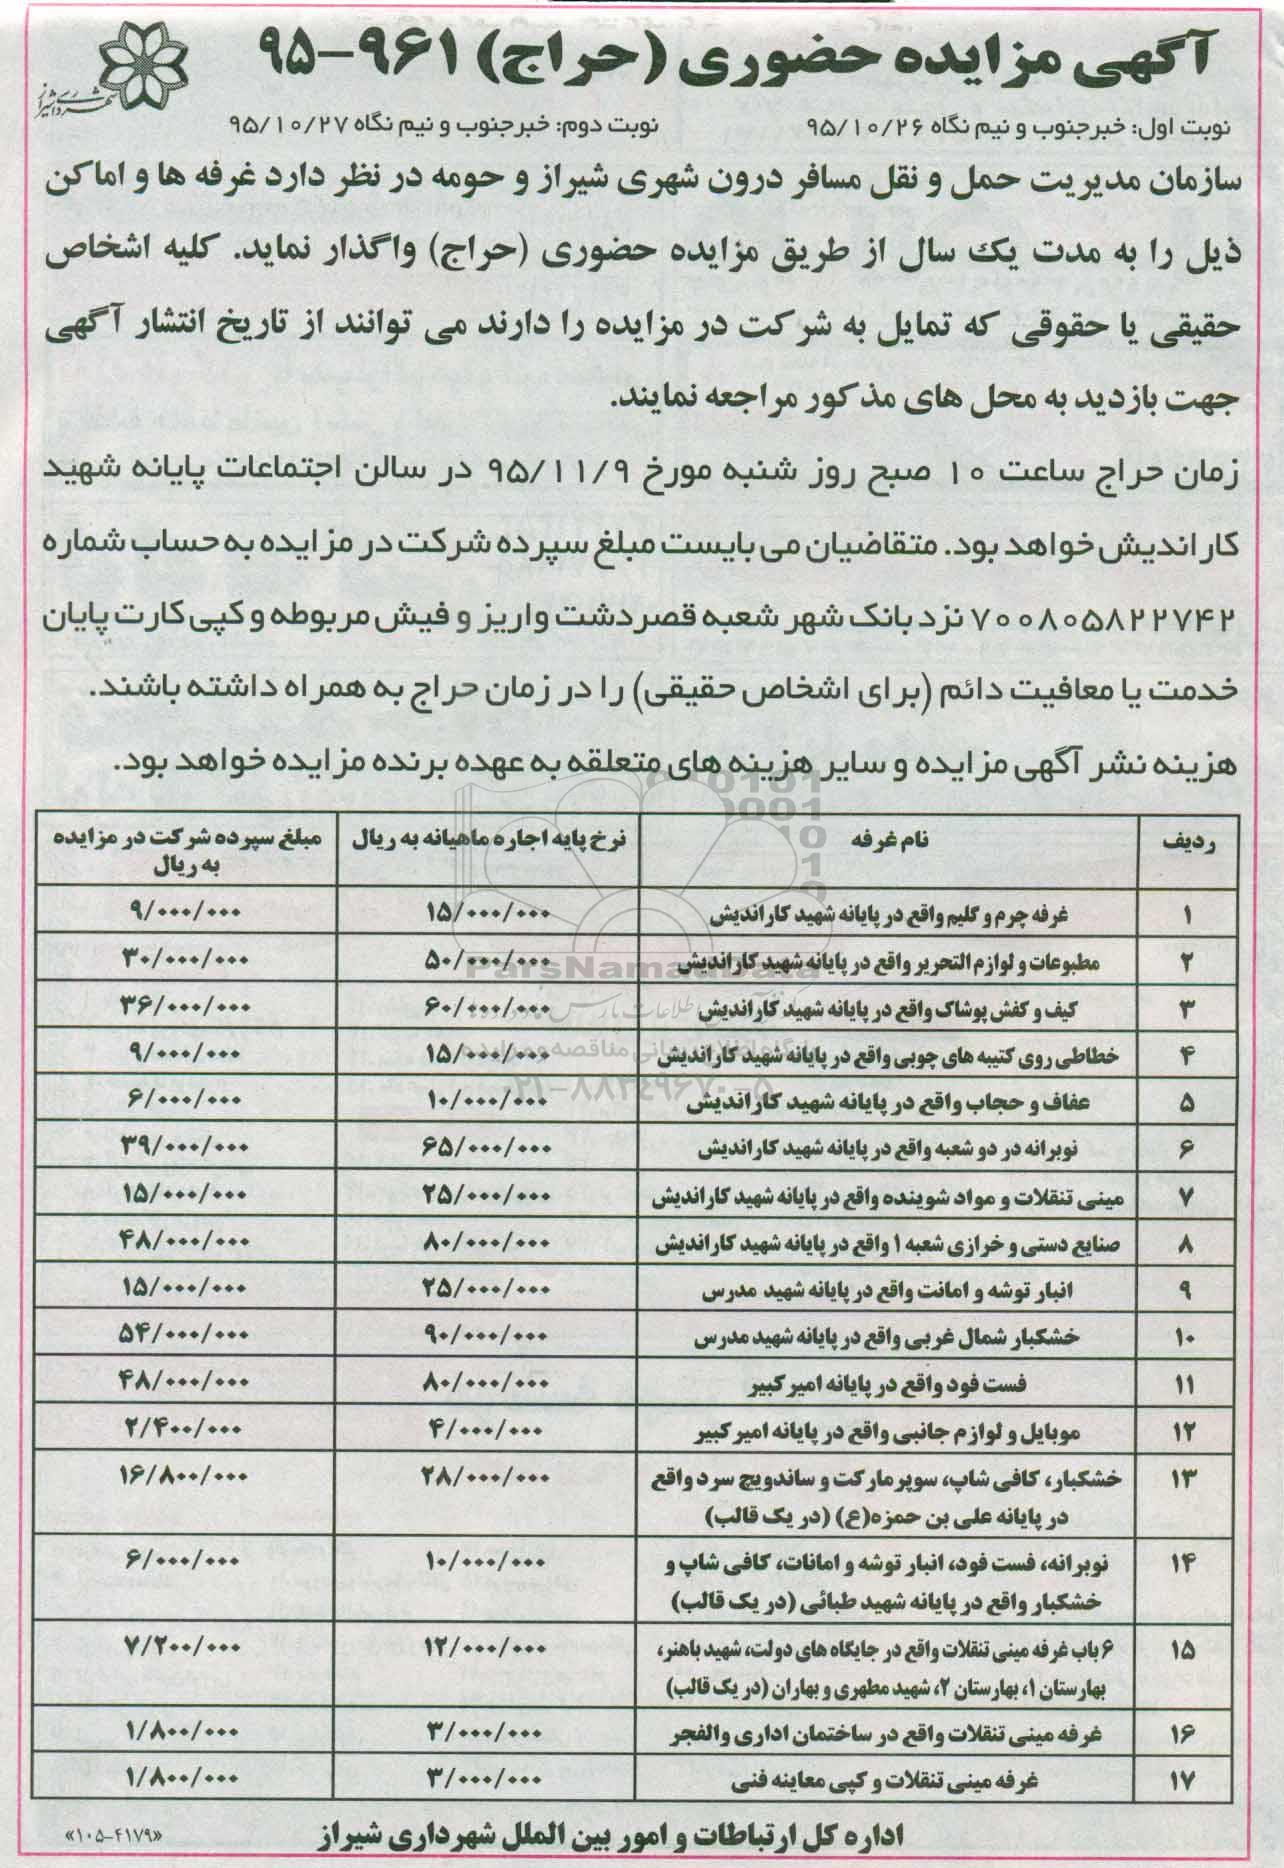 آگهی مزایده حضوری (حراج) ۹۶۱-۹۵
شهرداری شیراز
نوبت اول: خبرجنوب و نیم نگاه ۹۵/۱۰/۲۶
نوبت دوم: خبرجنوب و نیم نگاه ۹۵/۱۰/۲۷
سازمان مدیریت حمل و نقل مسافر درون شهری شیراز و حومه در نظر دارد غرفه ها و اماکن
ذیل را به مدت یک سال از طریق مزایده حضوری (حراج) واگذار نماید. کلیه اشخاص
حقیقی یا حقوقی که تمایل به شرکت در مزایده را دارند می توانند از تاریخ انتشار آگهی
جهت بازدید به محل های مذکور مراجعه نمایند.
زمان حراج ساعت ۱۰ صبح روز شنبه مورخ ۹۵/۱۱/۹ در سالن اجتماعات پایانه شهید
کاراندیش خواهد بود. متقاضیان می بایست مبلغ سپرده شرکت در مزایده به حساب شماره
۷۰۰۸۰۵۸۲۲۷۴۲ نزد بانک شهر شعبه قصردشت واریز و فیش مربوطه و کپی کارت پایان
خدمت یا معافیت دائم (برای اشخاص حقیقی) را در زمان حراج به همراه داشته باشند.
هزینه نشر آگهی مزایده و سایر هزینه های متعلقه به عهده برنده مزایده خواهد بود.
ردیف نام غرفه نرخ پایه اجاره ماهیانه به ریال مبلغ سپرده شرکت در مزایده
به ریال
۱ غرفه چرم و گلیم واقع در پایانه شهید کاراندیش ۱۵/۰۰۰/۰۰۰ ۹/۰۰۰/۰۰۰
۲ مطبوعات و لوازم التحریر واقع در پایانه شهید کاراندیش ۵۰/۰۰۰/۰۰۰ ۳۰/۰۰۰/۰۰۰
۳ کیف و کفش پوشاک واقع در پایانه شهید کاراندیش ۶۰/۰۰۰/۰۰۰ ۳۶/۰۰۰/۰۰۰
۴ خطاطی روی کتیبه های چوبی واقع در پایانه شهید کاراندیش ۱۵/۰۰۰/۰۰۰ ۹/۰۰۰/۰۰۰
۵ عفاف و حجاب واقع در پایانه شهید کاراندیش ۱۰/۰۰۰/۰۰۰ ۶/۰۰۰/۰۰۰
۶ نوبرانه در دو شعبه واقع در پایانه شهید کاراندیش ۶۵/۰۰۰/۰۰۰ ۳۹/۰۰۰/۰۰۰
۷ مینی تنقلات و مواد شوینده واقع در پایانه شهید کاراندیش ۲۵/۰۰۰/۰۰۰ ۱۵/۰۰۰/۰۰۰
۸ صنایع دستی و خرازی شعبه ۱ واقع در پایانه شهید کاراندیش ۸۰/۰۰۰/۰۰۰ ۴۸/۰۰۰/۰۰۰
۹ انبار توشه و امانت واقع در پایانه شهید مدرس ۲۵/۰۰۰/۰۰۰ ۱۵/۰۰۰/۰۰۰
۱۰ خشکبار شمال غربی واقع در پایانه شهید مدرس ۹۰/۰۰۰/۰۰۰ ۵۴/۰۰۰/۰۰۰
۱۱ فست فود واقع در پایانه امیر کبیر ۸۰/۰۰۰/۰۰۰ ۴۸/۰۰۰/۰۰۰
۱۲ موبایل و لوازم جانبی واقع در پایانه امیر کبیر ۴/۰۰۰/۰۰۰ ۲/۴۰۰/۰۰۰
۱۳ خشکبار، کافی شاپ، سوپرمارکت و ساندویچ سرد واقع ۲۸/۰۰۰/۰۰۰ ۱۶/۸۰۰/۰۰۰
در پایانه علی بن حمزه(ع) (در یک قالب)
۱۴ نوبرانه، فست فود، انبار توشه و امانات، کافی شاپ و ۱۰/۰۰۰/۰۰۰ ۶/۰۰۰/۰۰۰
خشکبار واقع در پایانه شهید طبائی (در یک قالب)
۱۵ ۶ باب غرفه مینی تنقلات واقع در جایگاه های دولت، شهید باهنر، ۱۲/۰۰۰/۰۰۰ ۷/۲۰۰/۰۰۰
بهارستان ۱، بهارستان ۲، شهید مطهری و بهاران (در یک قالب)
۱۶ غرفه مینی تنقلات واقع در ساختمان اداری والفجر ۳/۰۰۰/۰۰۰ ۱/۸۰۰/۰۰۰
۱۷ غرفه مینی تنقلات و کپی معاینه فنی ۳/۰۰۰/۰۰۰ ۱/۸۰۰/۰۰۰
ParsNamadData
۰۲۱-۸۸۳۴۹۶۷۰-۵
اداره کل ارتباطات و امور بین الملل شهرداری شیراز
«۱۰۵-۴۱۷۹»